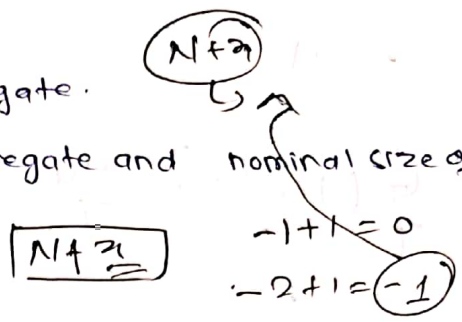 N+x
gate.
egate and nominal size o
N+x
-1+1=0
-2+1=-1